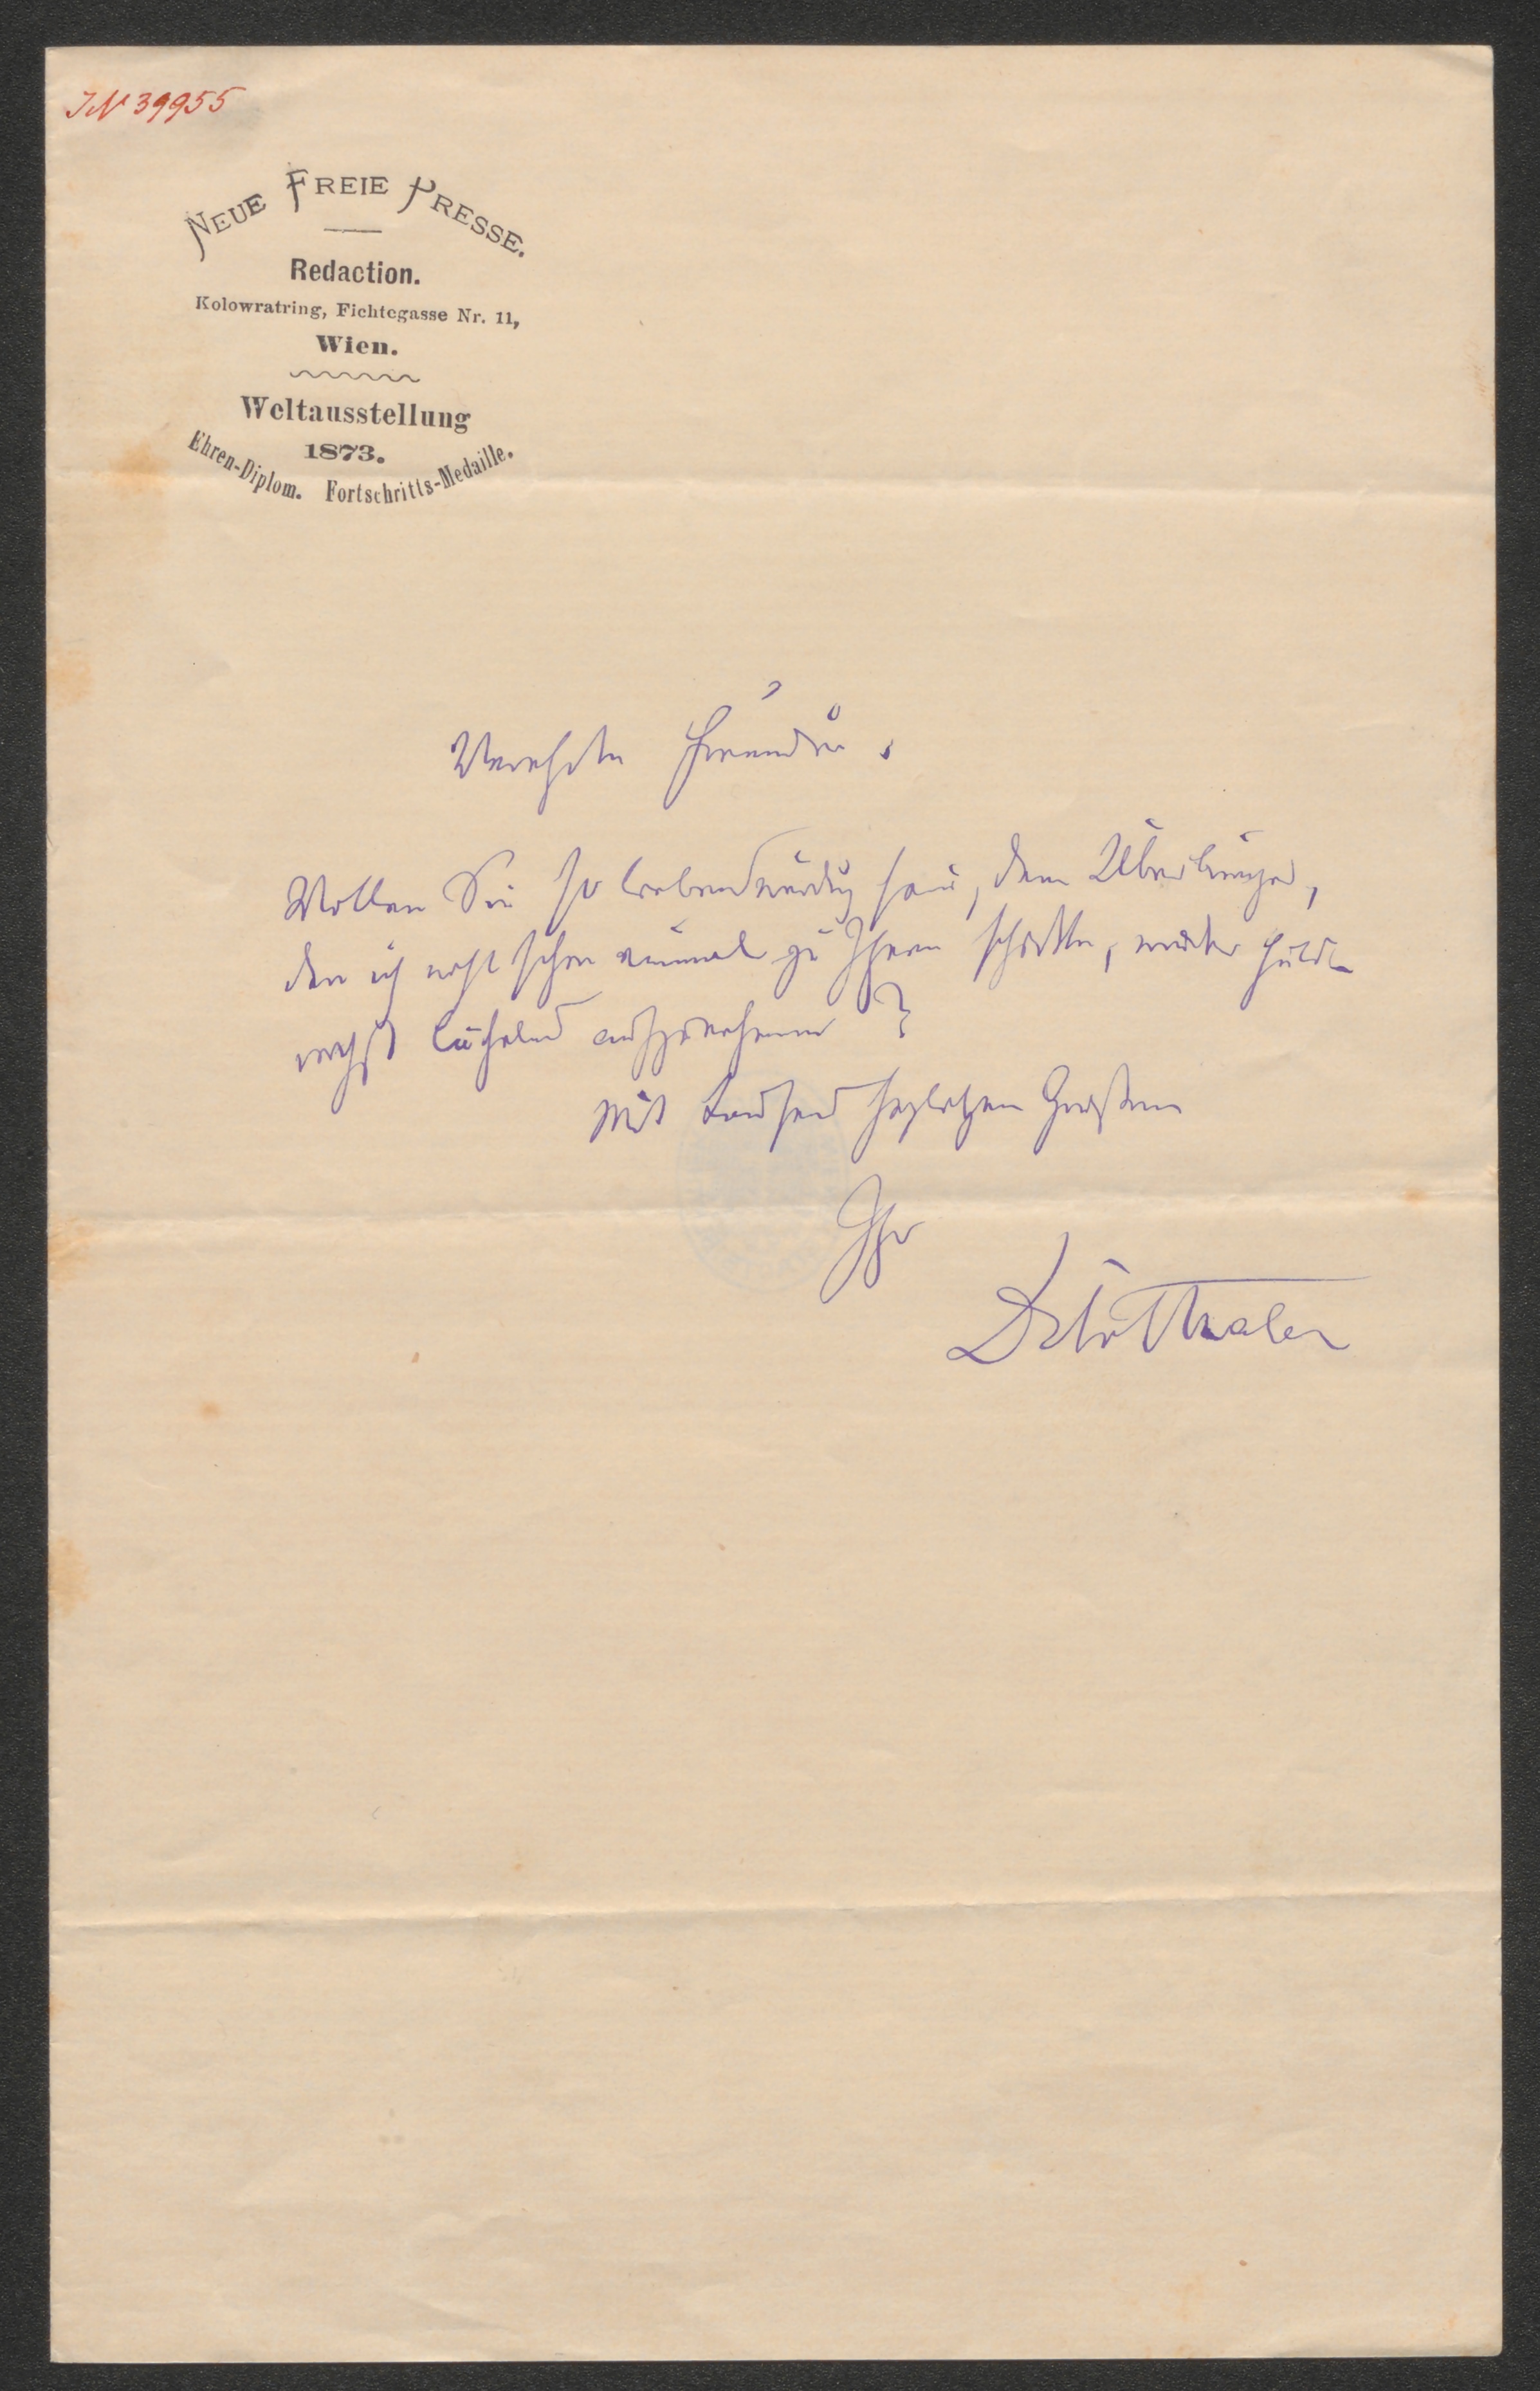 IN 39955
NEUE FREIE PRESSE.
Redaction.
Kolowratring, Fichtegasse Nr. 11,
Wien.
Weltausstellung
1873.
Ehren-Diplom. Fortschritts-Medaille.
Verehrte Freundin.
Wollen Sie so liebenswürdig sein, den Überbringer,
den ich erst schon einmal zu Ihnen schickte, wieder huld-
reichst lächelnd aufzunehmen?
Mit tausend herzlichen Grüßen
Ihr